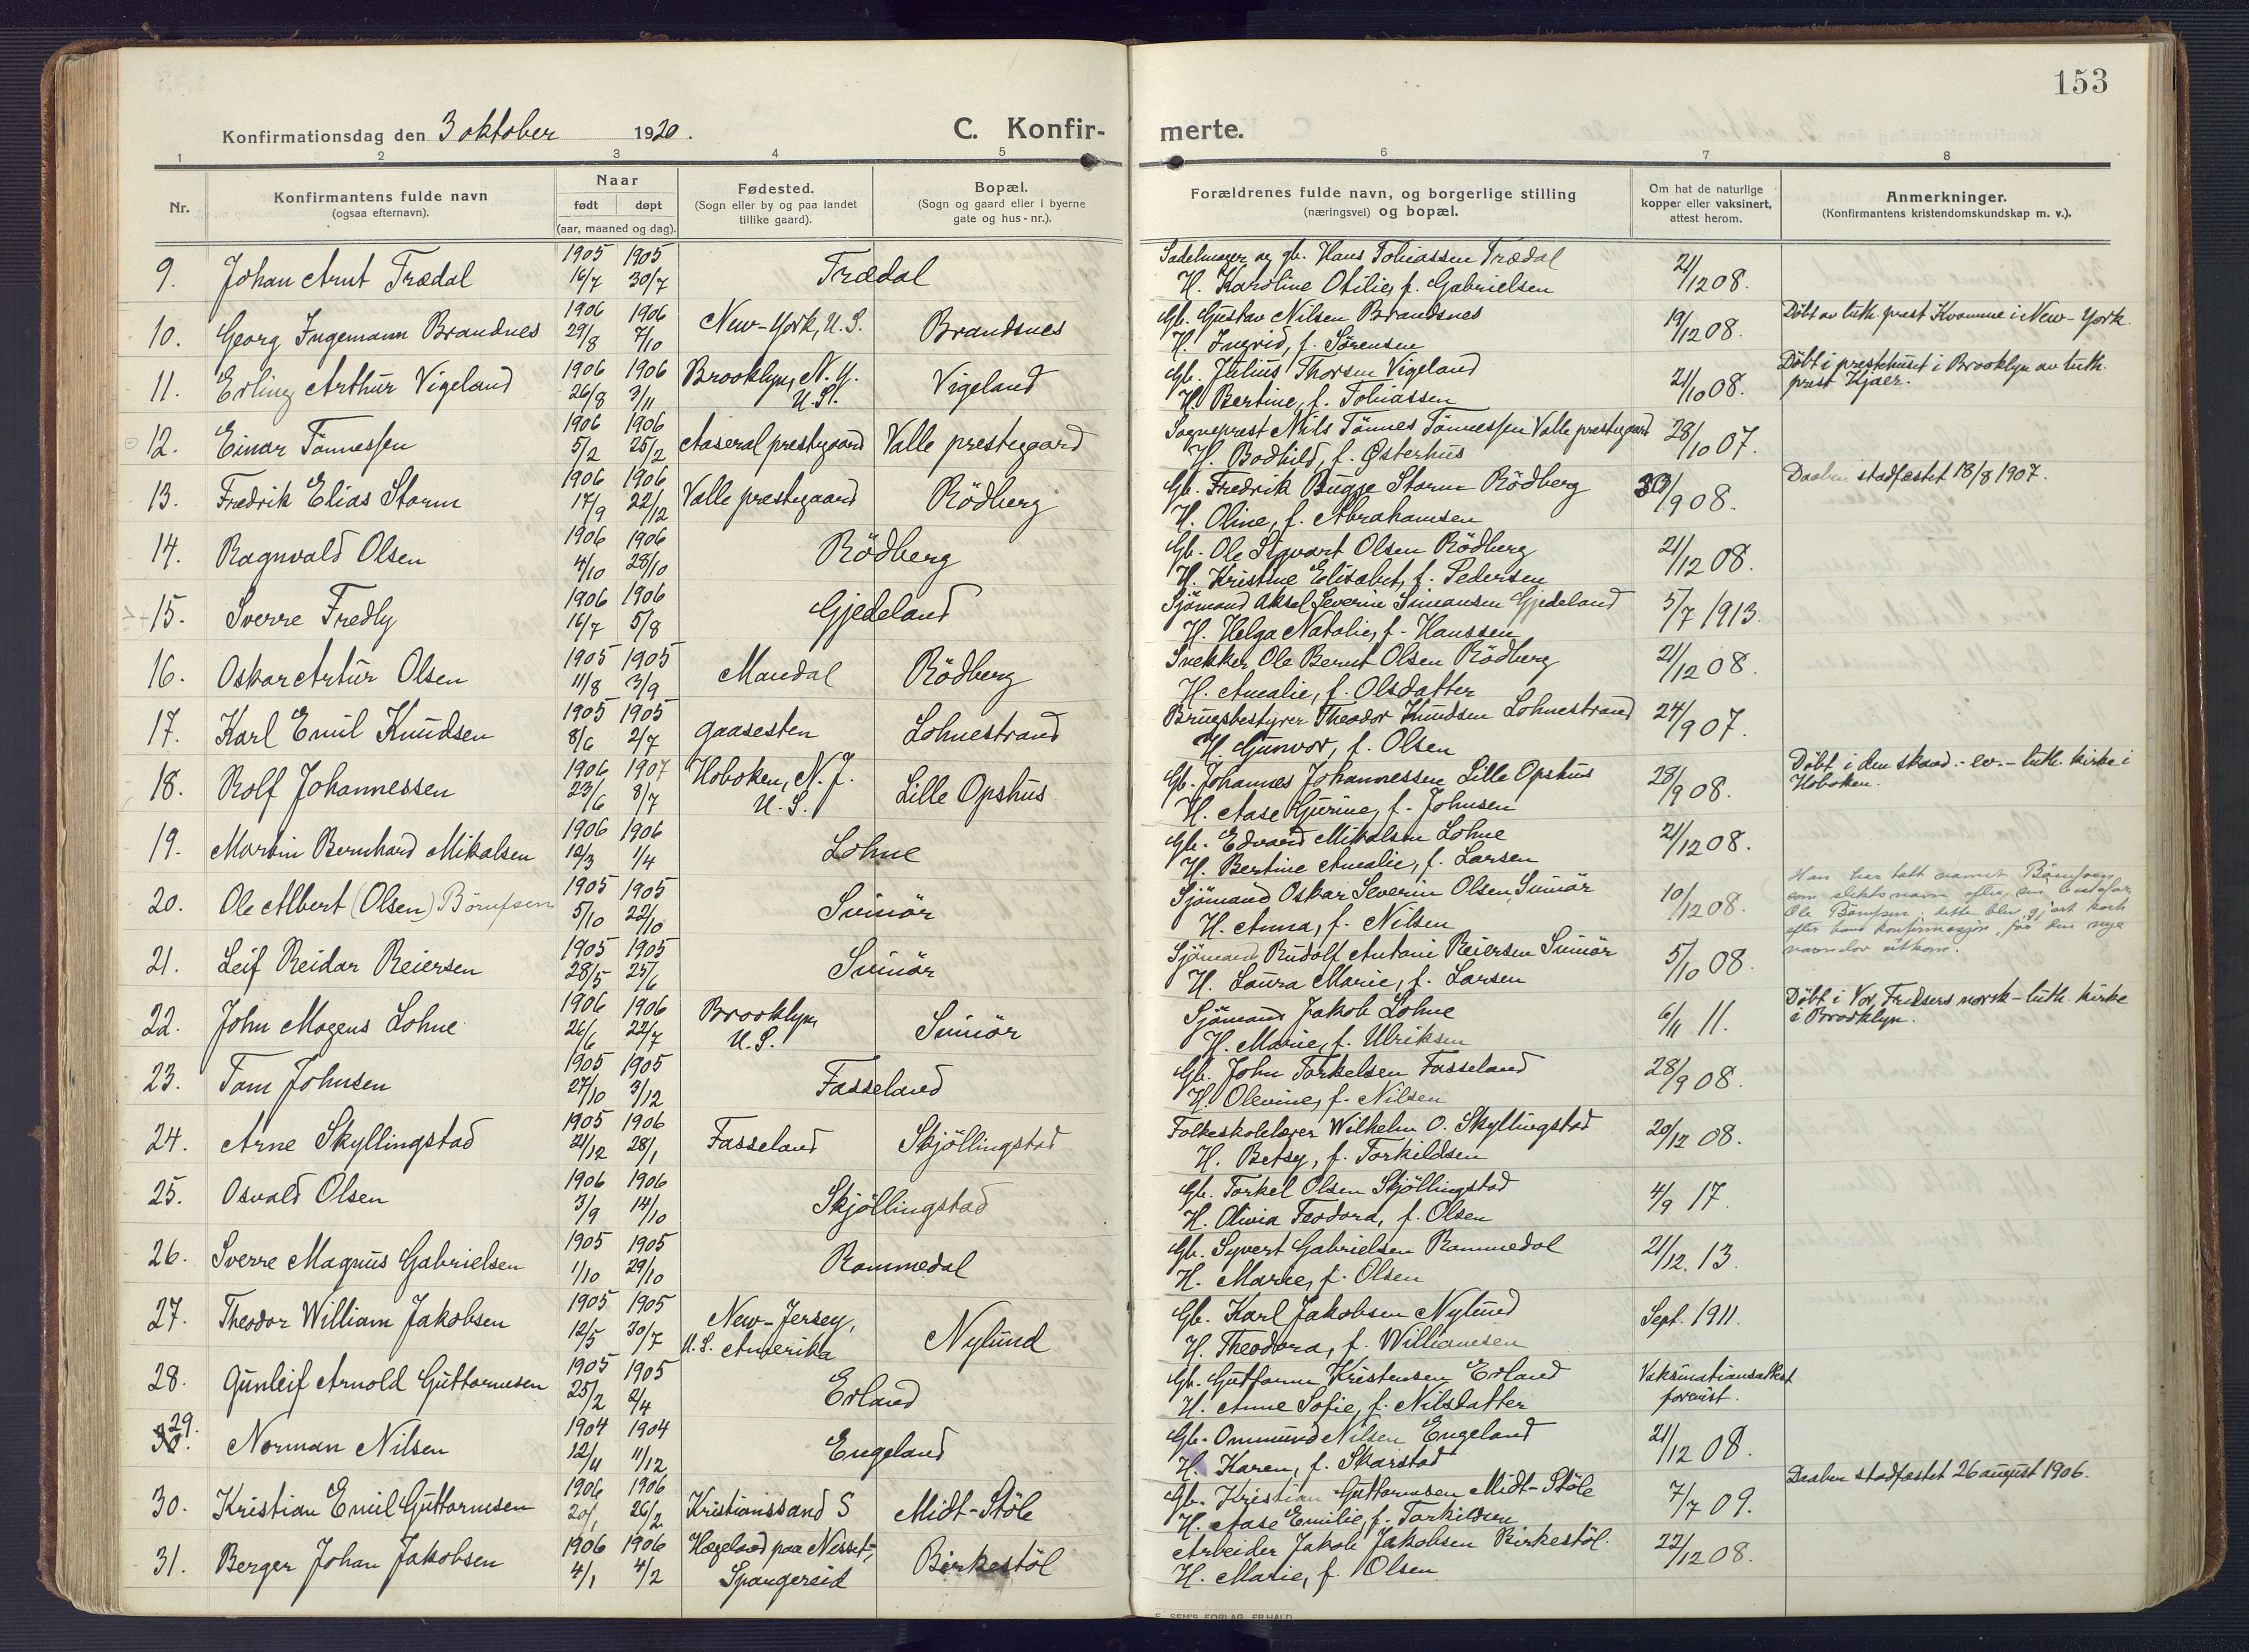 153
Konfirmationsdag den 3 oktober 1920.
C. Konfirmerte.
1 2 3 4 5 6 7 8
Nr.
Konfirmantens fulde navn
(ogsaa efternavn).
Naar
født døpt
(aar, maaned og dag).
Fødested.
(Sogn eller by og paa landet
tillike gaard).
Bopæl.
(Sogn og gaard eller i byerne
gate og hus-nr.).
Forældrenes fulde navn, og borgerlige stilling
(næringsvei) og bopæl.
Om hat de naturlige
kopper eller vaksinert,
attest herom.
Anmerkninger.
(Konfirmantens kristendomskundskap m. v.).
1905 1905
9. Johan Arnt Trædal 16/7 30/7 Trædal
Sadelmager og gb. Hans Tobiassen Trædal
H. Karoline Otilie, f. Gabrielsen
21/12 08.
1906 1906
10. Georg Ingemann Brandnes 29/8 7/10 New-York, U.S. Brandsnes
Gb. Gustav Nilsen Brandsnes
H. Ingrid, f. Sørensen
19/12 08.
Döbt av luth. prest Kvamme i New-York.
1906 1906
11. Erling Arthur Vigeland 26/8 3/11 Brooklyn, N.Y. U.St. Vigeland
Gb. Julius Thorsen Vigeland
H. Bertine, f. Tobiassen
21/10 08.
Döbt i prestehuset i Brooklyn av luth.
prest Kjaer.
1906 1906
12. Einar Tönnessen 5/2 25/2 Aaseral prestegaard Valle prestegaard
Sogneprest Nils Tönnes Tönnessen Valle prestegaard
H. Bodhild, f. Østerhus
28/10 07.
1906 1906
13. Fredrik Elias Storm 17/9 22/12 Valle prestegaard Rödberg
Gb. Fredrik Bugge Storm Rödberg
H. Oline, f. Abrahamsen
30/9 08.
Daaben stadfæstet 18/8 1907.
1906 1906
14. Ragnvald Olsen 4/10 28/10 Rödberg
Gb. Ole Sigvart Olsen Rödberg
H. Kristine Elisabet, f. Pedersen
21/12 08.
1906 1906
15. Sverre Fredly 16/7 5/8 Gjedeland
Sjömand Aksel Severin Simonsen Gjedeland
H. Helga Natalie, f. Hanssen
5/7 1913.
1905 1905
16. Oskar Artur Olsen 11/8 3/9 Mandal Rödberg
Snekker Ole Bernt Olsen Rödberg
H. Amalie, f. Olsdatter
21/12 08.
1905 1905
17. Karl Emil Knudsen 8/6 2/7 Gaasesten Lohnestrand
Brugsbestyrer Theodor Knudsen Lohnestrand
H. Gunvor, f. Olsen
24/9 07.
1906 1907
18. Rolf Johannessen 23/6 8/7 Hoboken, N.J. U.S. Lille Opshus
Gb. Johannes Johannessen Lille Opshus
H. Aase Gurine, f. Johnsen
28/9 08.
Döbt i den skand.-ev.-luth. kirke i
Hoboken.
1906 1906
19. Martin Bernhard Mikalsen 12/3 1/4 Lohne
Gb. Edvard Mikalsen Lohne
H. Bertine Amalie, f. Larsen
21/12 08.
1905 1905
20. Ole Albert (Olsen) Börufsen 5/10 22/10 Svinör
Sjömand Oskar Severin Olsen, Svinör
H. Anna, f. Nilsen
10/12 08.
Han har tatt navnet
som slektsnavn efter sin bestefar
Ole dette blev gjort kort
efter hans konfirmasjon, før den nye
navnelov utkom.
1905 1905
21. Leif Reidar Reiersen 28/5 25/6 Svinör
Sjömand Rudolf Antoni Reiersen Svinör
H. Laura Marie, f. Larsen
5/10 08.
1906 1906
22. John Mogens Lohne 26/6 22/7 Brooklyn, U.S. Svinör
Sjömand Jakob Lohne
H. Marie, f. Ulriksen
6/11 11.
Döbt i Vor Frelsers norsk-luth. kirke
i Brooklyn.
1905 1905
23. Tom Johnsen 27/10 3/12 Fasseland
Gb. John Torkelsen Fasseland
H. Olevine, f. Nilsen
28/9 08.
1905 1906
24. Arne Skyllingstad 21/12 28/1 Fasseland Skjöllingstad
Folkeskolelærer Wilhelm O. Skyllingstad
H. Betsy, f. Torkildsen
20/12 08.
1906 1906
25. Osvald Olsen 3/9 14/10 Skjöllingstad
Gb. Torkel Olsen Skjöllingstad
H. Olivia Teodora, f. Olsen
4/9 17.
1905 1905
26. Sverre Magnus Gabrielsen 1/10 29/10 Rommedal
Gb. Syvert Gabrielsen Rommedal
H. Marie, f. Olsen
21/12. 13.
1905 1905
27. Theodor William Jakobsen 12/5 30/7 New-Jersey, U.S. Amerika Nylund
Gb. Karl Jakobsen Nylund
H. Theodora, f. Williamsen
Sept. 1911.
1905 1905
28. Gunleif Arnold Guttormsen 25/2 2/4 Erland
Gb. Guttorm Kristensen Erland
H. Anne Sofie, f. Nilsdatter
Vaksinationsattest
forevist.
1904 1904
29. Norman Nilsen 12/11 11/12 Engeland
Gb. Ommund Nilsen Engeland
H. Karen, f. Skarstad
21/12 08.
1906 1906
30. Kristian Emil Guttormsen 20/1 26/2 Kristianssand S Midt-Stöle
Gb. Kristian Guttormsen Midt-Stöle
H. Aase Emilie, f. Torkildsen
7/7 09.
Daaben stadfæstet 26 august 1906.
1906 1906
31. Berger Johan Jakobsen 4/1 4/2 Hægeland paa Nesset, Spangereid Birkestöl
Arbeider Jakob Jakobsen Birkestöl.
H. Marie, f. Olsen
22/12 08.